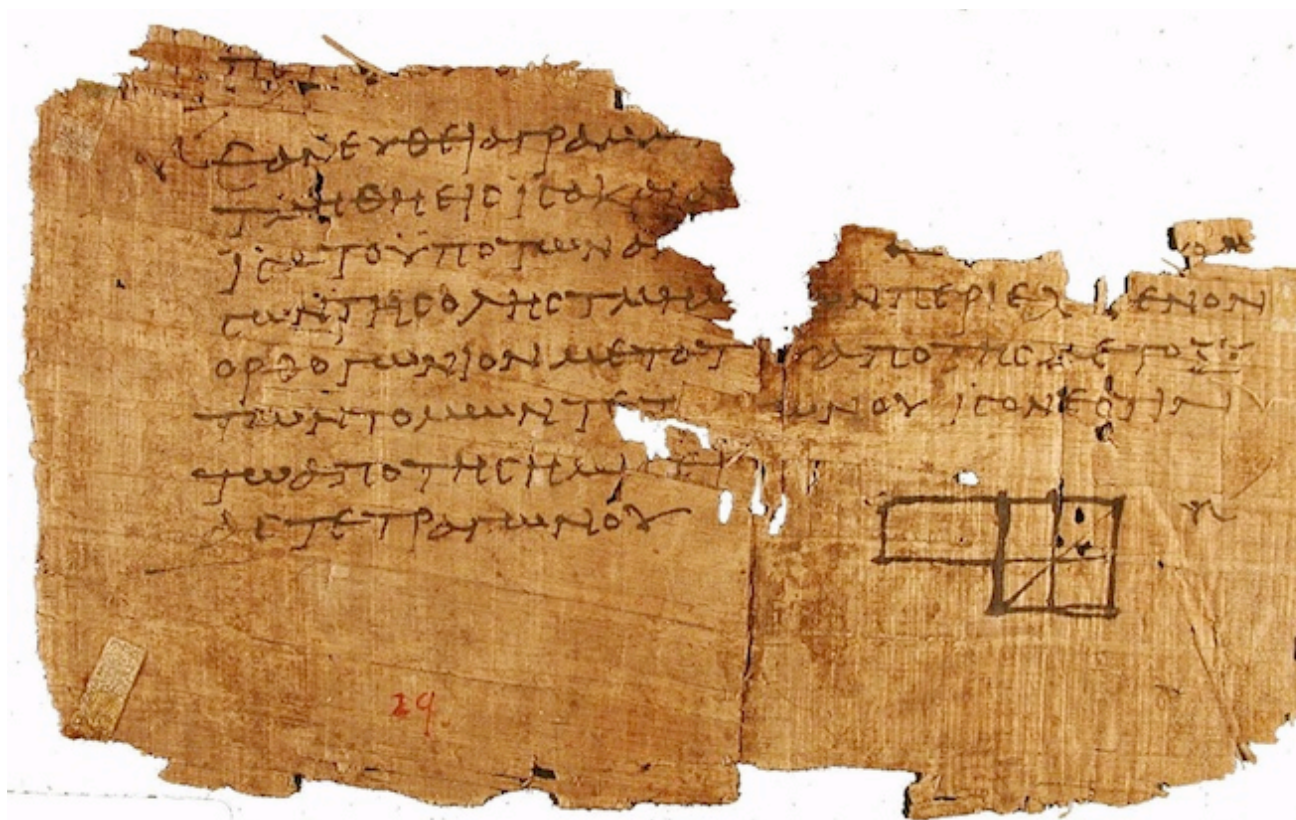 ΕΑΝΕΥΘΕΙΑΓΡΑΜ
ΤΜΗΘΗΕΙϹΙϹΑΚΑΙΑ
ΙϹΑΤΟΥΠΟΤΩΝΑ
ϹΩΝΤΗϹΟΛΗϹΤΜΗΜ ΩΝΠΕΡΙΕΧ ΕΝΟΝ
ΟΡΘΟΓΩΝΙΟΝΜΕΤΑΤ ΥΑΠΟΤΗϹΜΕΤΟΞΥ
ΤΩΝΤΟΜΩΝΤΕΤ ΩΝΟΥΙϹΟΝΕϹΤΙΝ
ΤΩΑΠΟΤΗϹΗΜΙϹΕΙ
ΑϹΤΕΤΡΑΓΩΝΟΥ
29